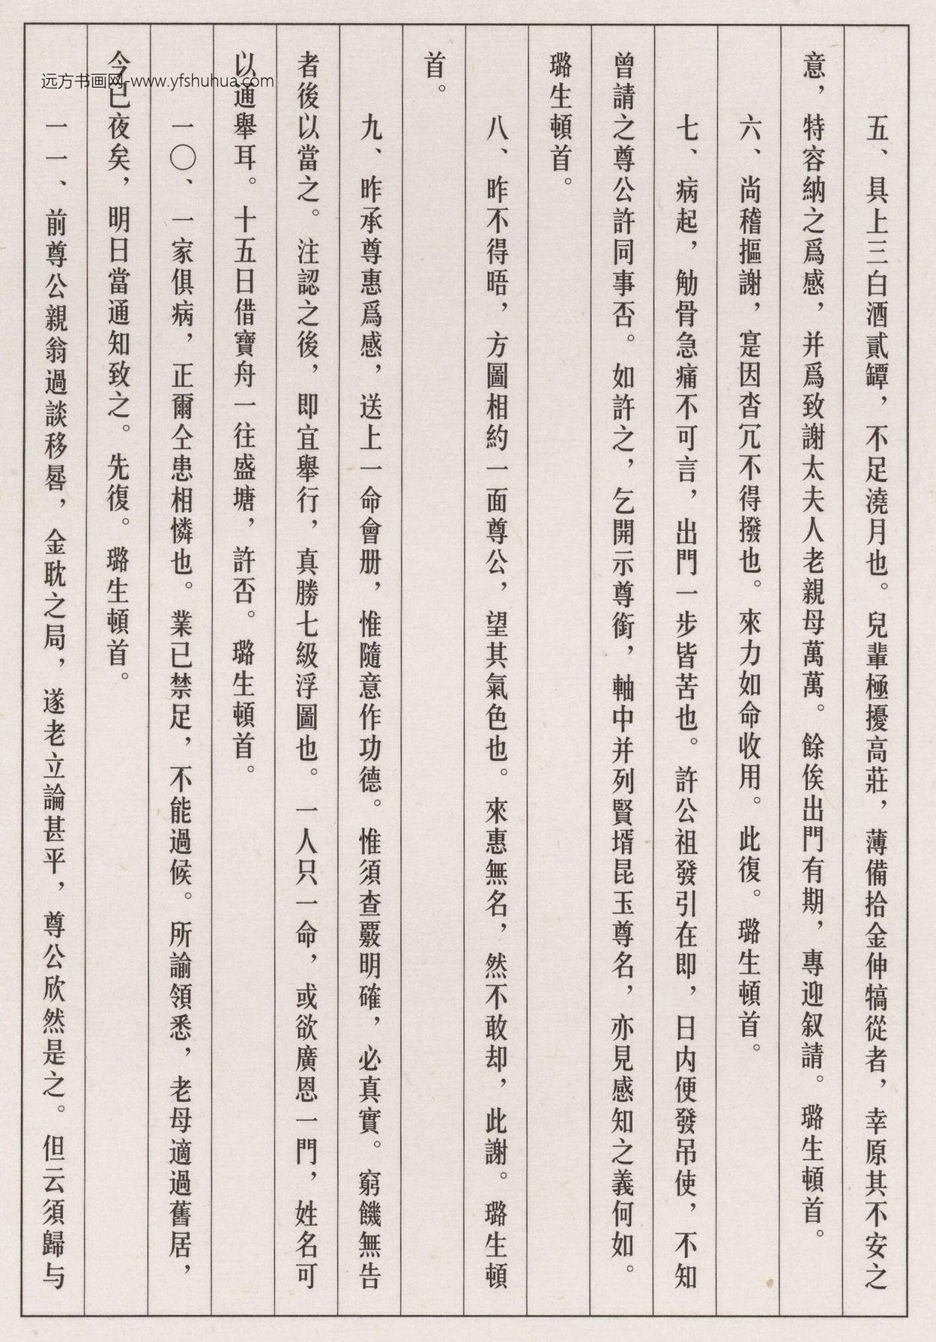 五、具上三白酒貳罈，不足澆月也。兒輩極擾高莊，薄備拾金伸犒從者，幸原其不安之
意，特容納之爲感，并爲致謝太夫人老親母萬萬。餘俟出門有期，專迎叙請。璐生頓首。
六、尚稽摳謝，寔因沓冗不得撥也。來力如命收用。此復。璐生頓首。
七、病起，觔骨急痛不可言，出門一步皆苦也。許公祖發引在即，日内便發吊使，不知
曾請之尊公許同事否。如許之，乞開示尊銜，軸中并列賢壻昆玉尊名，亦見感知之義何如。
璐生頓首。
八、昨不得晤，方圖相約一面尊公，望其氣色也。來惠無名，然不敢却，此謝。璐生頓
首。
九、昨承尊惠爲感，送上一命會册，惟隨意作功德。惟須查覈明確，必真實。窮饑無告
者後以當之。注認之後，即宜舉行，真勝七級浮圖也。一人只一命，或欲廣恩一門，姓名可
以通舉耳。十五日借寶舟一往盛塘，許否。璐生頓首。
一〇、一家俱病，正爾仝患相憐也。業已禁足，不能過候。所諭領悉，老母適過舊居，
今已夜矣，明日當通知致之。先復。璐生頓首。
一一、前尊公親翁過談移晷，金耽之局，遂老立論甚平，尊公欣然是之。但云須歸与
远方书画网-www.yfshuhua.com